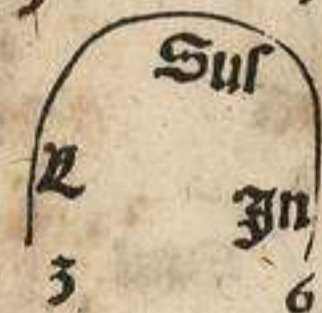 Suſ
R In
3 6